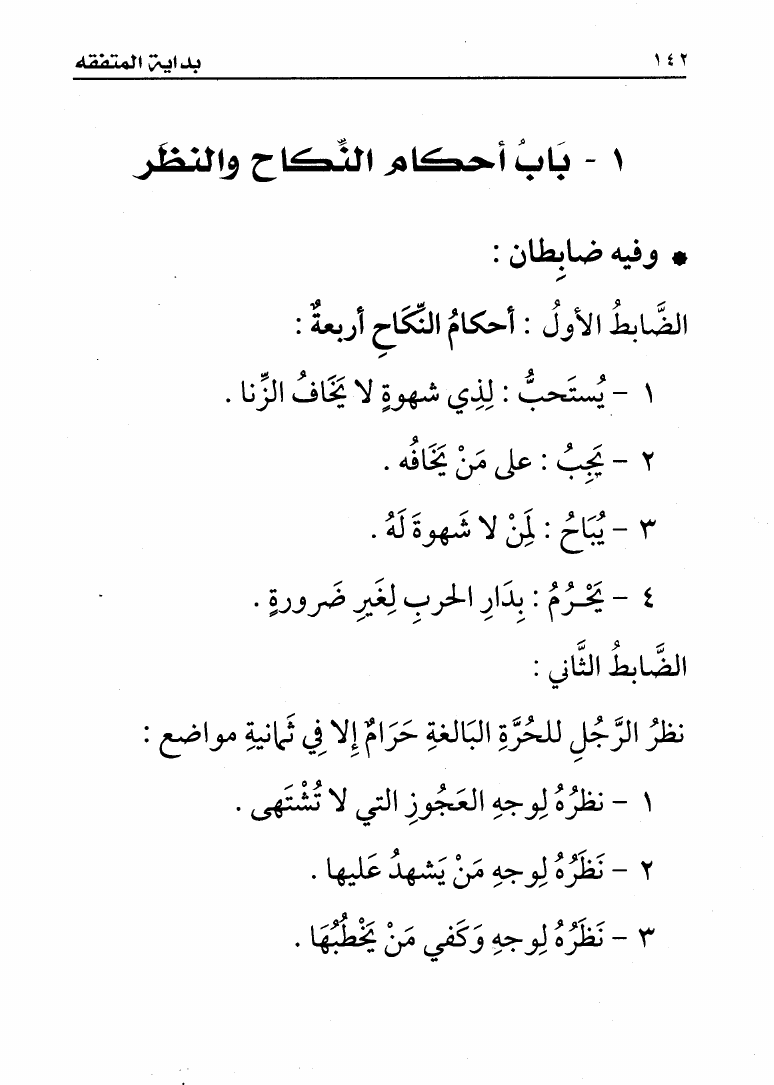 ١٤٢ بداية المتفقه
١ - بَابُ أحكام النِّكاح والنظَر
* وفيه ضابِطان :
الضَّابطُ الأولُ : أحكامُ النِّكَاحِ أربعةٌ :
١ - يُستَحبُّ : لِذِي شهوةٍ لا يَخَافُ الزِّنا .
٢ - يَجِبُ : على مَنْ يَخَافُه .
٣ - يُبَاحُ : لَمِنْ لا شَهوةَ لَهُ .
٤ - يَحْرُمُ : بِدَارِ الحربِ لِغَيرِ ضَرورةٍ .
الضَّابطُ الثَّاني :
نظرُ الرَّجُلِ للحُرَّةِ البَالغةِ حَرَامٌ إِلا فِي ثَمانيةِ مواضع :
١ - نظرُهُ لِوجهِ العَجُوزِ التي لا تُشْتَهى .
٢ - نَظَرُهُ لِوجهِ مَنْ يَشهدُ عَليها .
٣ - نَظَرُهُ لِوجهِ وَكَفي مَنْ يَخْطُبُهَا .